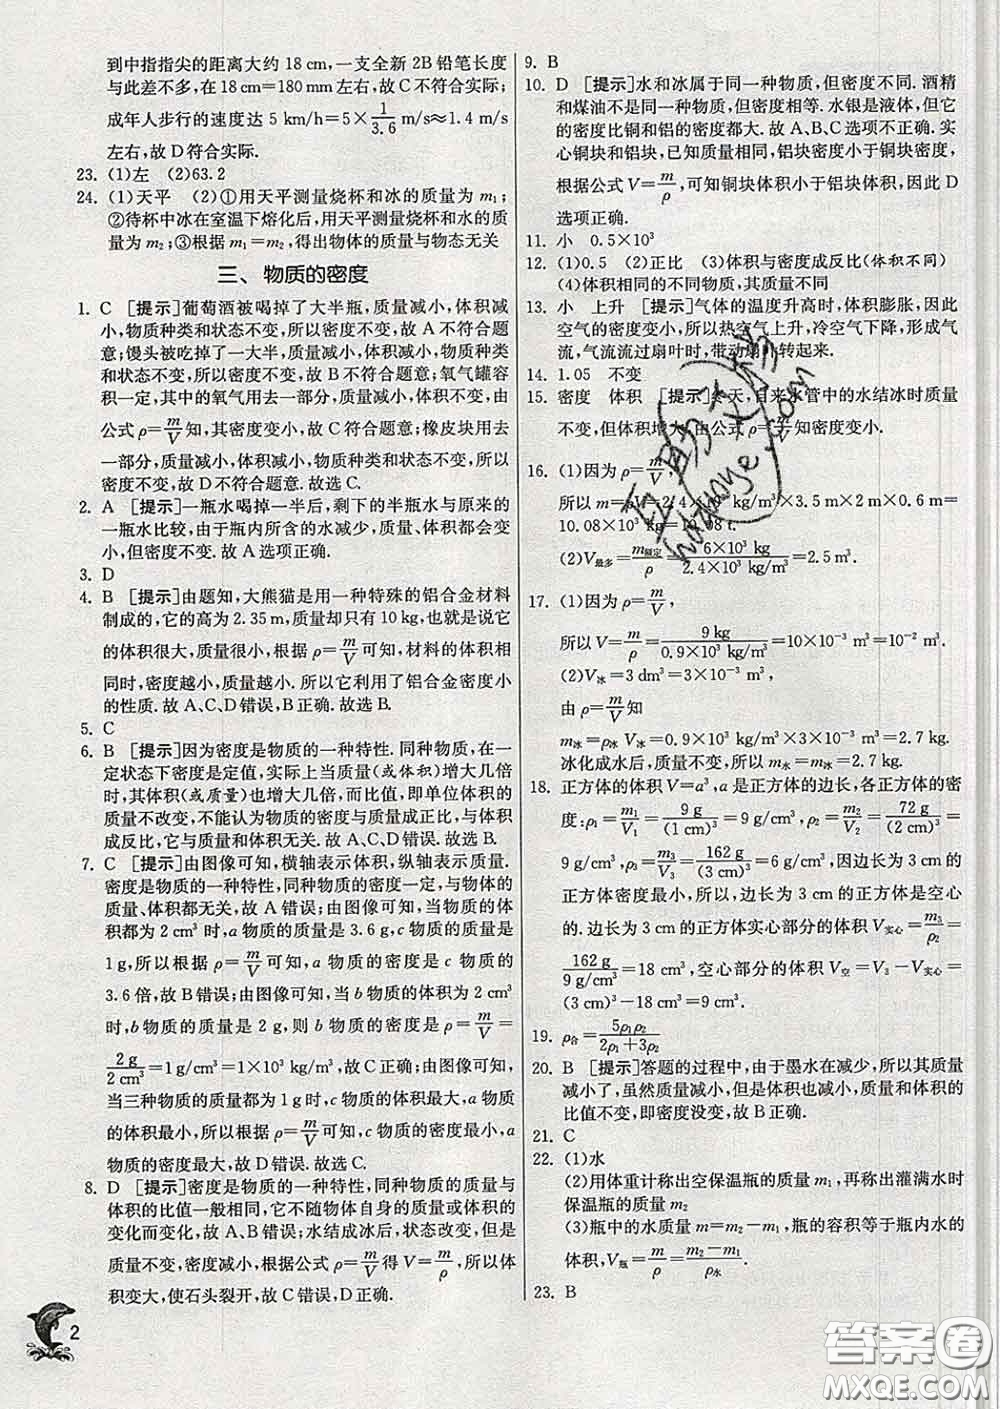 到中指指尖的距离大约 18 cm,一支全新 2B 铅笔长度
与此差不多,在 18 cm=180 mm 左右,故 C 不符合实际;
成年人步行的速度达 5 km/h=5×1/3.6 m/s≈1.4 m/s
左右,故 D 符合实际.
23. (1)左 (2)63.2
24. (1)天平 (2)①用天平测量烧杯和冰的质量为 m₁;
②待杯中冰在室温下熔化后,用天平测量烧杯和水的质
量为 m₂;③根据 m₁=m₂,得出物体的质量与物态无关
三、物质的密度
1. C [提示]葡萄酒被喝掉了大半瓶,质量减小,体积减
小,物质种类和状态不变,所以密度不变,故 A 不符合题
意;馒头被吃掉了一大半,质量减小,体积减小,物质种类
和状态不变,所以密度不变,故 B 不符合题意;氧气罐容
积一定,其中的氧气用去一部分,质量减小,体积不变,由
公式 ρ=m/V知,其密度变小,故 C 符合题意;橡皮块用去
一部分,质量减小,体积减小,物质种类和状态不变,所以
密度不变,故 D 不符合题意.故选 C.
2. A [提示]一瓶水喝掉一半后,剩下的半瓶水与原来的
一瓶水比较,由于瓶内所含的水减少,质量、体积都会变
小,但密度不变.故 A 选项正确.
3. D
4. B [提示]由题知,大熊猫是用一种特殊的铝合金材料
制成的,它的高为 2.35 m,质量却只有 10 kg,也就是说它
的体积很大,质量很小,根据 ρ=m/V可知,材料的体积相
同时,密度越小,质量越小.所以它利用了铝合金密度小
的性质.故 A、C、D 错误,B 正确.故选 B.
5. C
6. B [提示]因为密度是物质的一种特性.同种物质,在一
定状态下密度是定值,实际上当质量(或体积)增大几倍
时,其体积(或质量)也增大几倍,而比值,即单位体积的
质量不改变,不能认为物质的密度与质量成正比,与体积
成反比,它与质量和体积无关.故 A、C、D 错误.故选 B.
7. C [提示]由图像可知,横轴表示体积,纵轴表示质量.
密度是物质的一种特性,同种物质的密度一定,与物体的
质量、体积都无关,故 A 错误;由图像可知,当物质的体
积都为 2 cm³ 时,a 物质的质量是 3.6 g,c 物质的质量是
1 g,所以根据 ρ=m/V可知,a 物质的密度是 c 物质的
3.6 倍,故 B 错误;由图像可知,当 b 物质的体积为 2 cm³
时,b 物质的质量是 2 g,则 b 物质的密度是 ρ=m/V=
2 g/2 cm³=1 g/cm³=1×10³ kg/m³,故 C 正确;由图像可知,
当三种物质的质量都为 1 g 时,c 物质的体积最大,a 物质
的体积最小,所以根据 ρ=m/V可知,c 物质的密度最小,a
物质的密度最大,故 D 错误.故选 C.
8. D [提示]密度是物质的一种特性,同种物质的质量与
体积的比值一般相同,它不随物体自身的质量或体积的
变化而变化,故 A、B 错误;水结成冰后,状态改变,但是
质量不变,密度变小,根据公式 ρ=m/V得 V=m/ρ,所以体
积变大,使石头裂开,故 C 错误,D 正确.
2
9. B
10. D [提示]水和冰属于同一种物质,但密度不同.酒精
和煤油不是同一种物质,但密度相等.水银是液体,但它
的密度比铜和铝的密度都大.故 A、B、C 选项不正确.实
心铜块和铝块,已知质量相同,铝块密度小于铜块密度,
根据公式 V=m/ρ,可知铜块体积小于铝块体积,因此 D
选项正确.
11. 小 0.5×10³
12. (1)0.5 (2)正比 (3)体积与密度成反比(体积不同)
(4)体积相同的不同物质,其质量不同
13. 小 上升 [提示]气体的温度升高时,体积膨胀,因此
空气的密度变小,所以热空气上升,冷空气下降,形成气
流,气流流过扇叶时,带动扇叶转起来.
14. 1.05 不变
15. 密度 体积 [提示]冬天,自来水管中的水结冰时质量
不变,但体积增大,由公式 ρ=m/V知密度变小.
16. (1)因为 ρ=m/V,
所以 m=ρV=2.4×10³ kg/m³×3.5 m×2 m×0.6 m=
10.08×10³ kg=10.08 t.
(2)V最多=m额定/ρ=6×10³ kg/2.4×10³ kg/m³=2.5 m³.
17. (1)因为 ρ=m/V,
所以 V=m/ρ=9 kg/0.9×10³ kg/m³=10×10⁻³ m³=10⁻² m³.
(2)V冰=3 dm³=3×10⁻³ m³,
由 ρ=m/V知
m冰=ρ冰 V冰=0.9×10³ kg/m³×3×10⁻³ m³=2.7 kg.
冰化成水后,质量不变,所以 m水=m冰=2.7 kg.
18. 正方体的体积 V=a³,a 是正方体的边长,各正方体的密
度:ρ₁=m₁/V₁=9 g/(1 cm)³=9 g/cm³,ρ₂=m₂/V₂=72 g/(2 cm)³=
9 g/cm³,ρ₃=m₃/V₃=162 g/(3 cm)³=6 g/cm³,因边长为 3 cm 的
正方体密度最小,所以,边长为 3 cm 的正方体是空心
的.边长为 3 cm 的正方体实心部分的体积 V实心=m₃/ρ₂=
162 g/9 g/cm³=18 cm³,空心部分的体积 V空=V₃−V实心=
(3 cm)³−18 cm³=9 cm³.
19. ρ合=5ρ₁ρ₂/2ρ₁+3ρ₂
20. B [提示]答题的过程中,由于墨水在减少,所以其质量
减小了,虽然质量减小,但是体积也减小,质量和体积的
比值不变,即密度没变,故 B 正确.
21. C
22. (1)水
(2)用体重计称出空保温瓶的质量 m₁,再称出灌满水时
保温瓶的质量 m₂
(3)瓶中的水质量 m=m₂−m₁,瓶的容积等于瓶内水的
体积,V瓶=m/ρ=m₂−m₁/ρ水.
23. B
答案圈
MXQE.COM